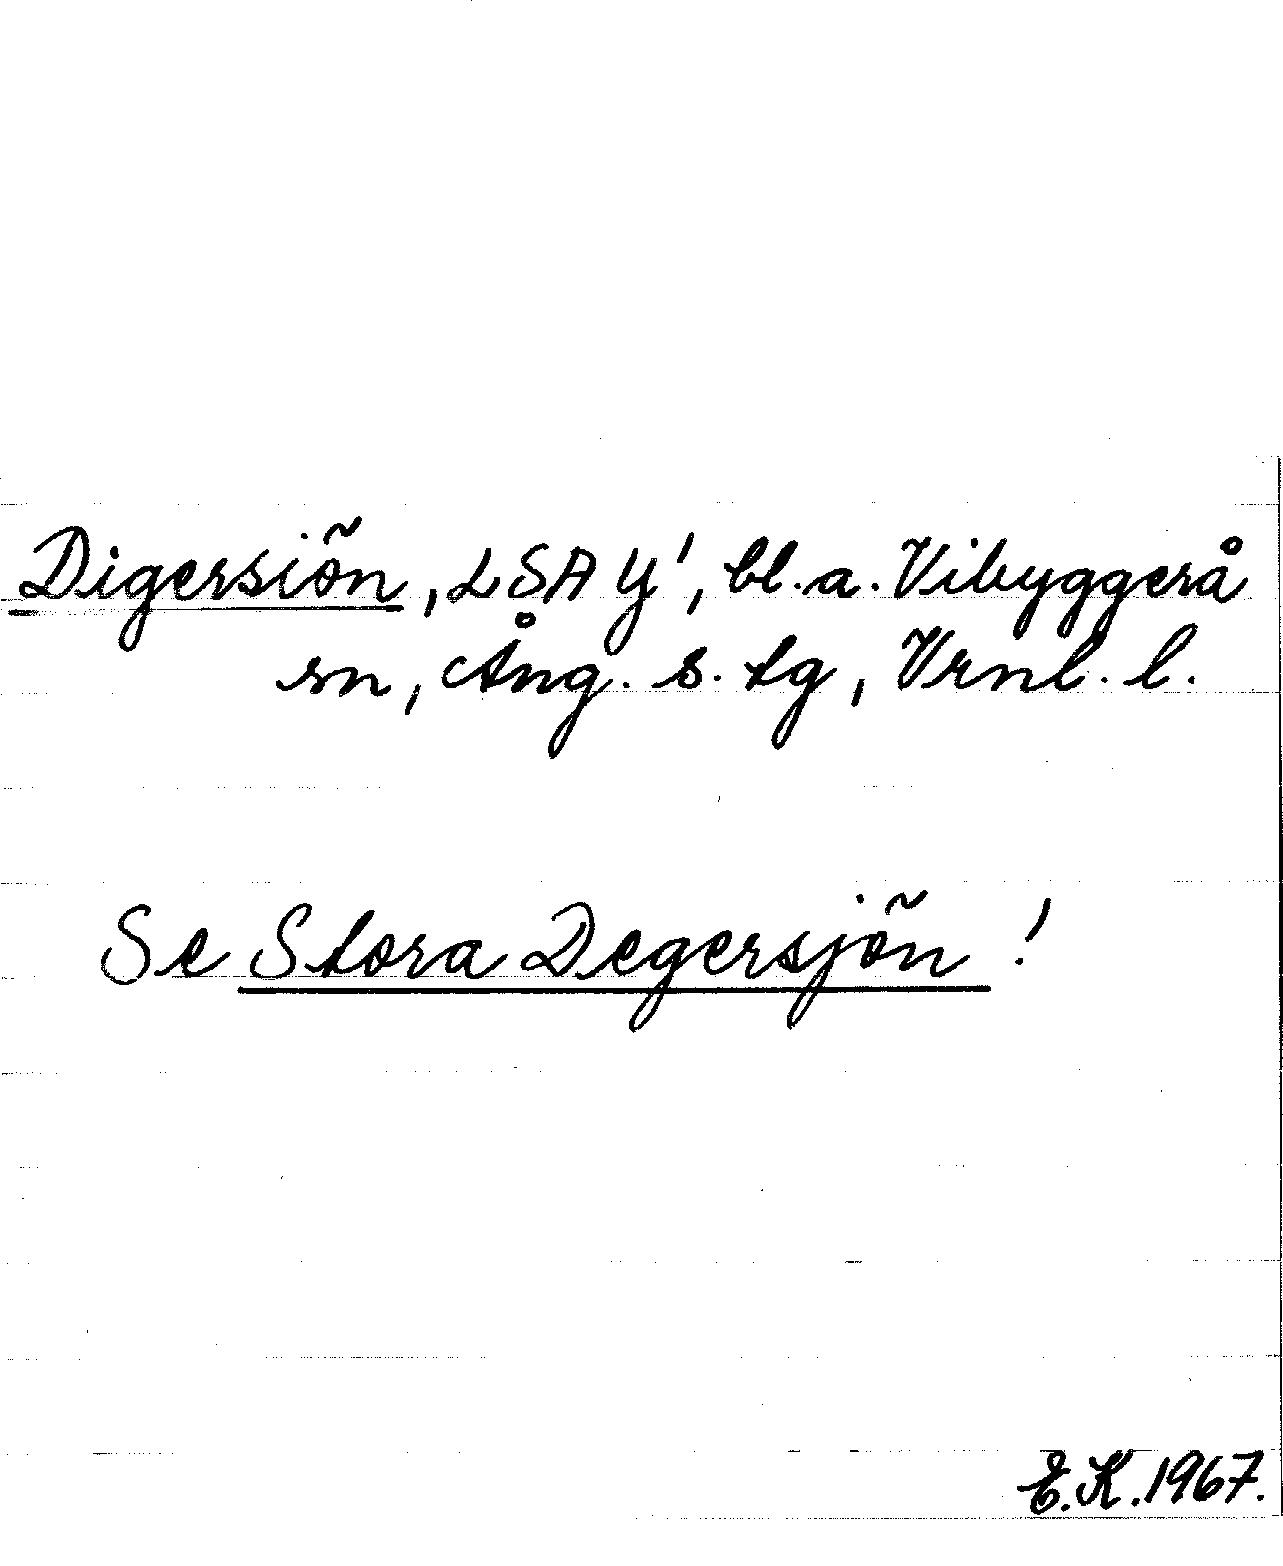 Digersiön, LSA Y', bl.a. Vibyggerå
sn, Ång. s. tg, Vrnl. l.
Se Stora Degersjön!
E.K. 1967.